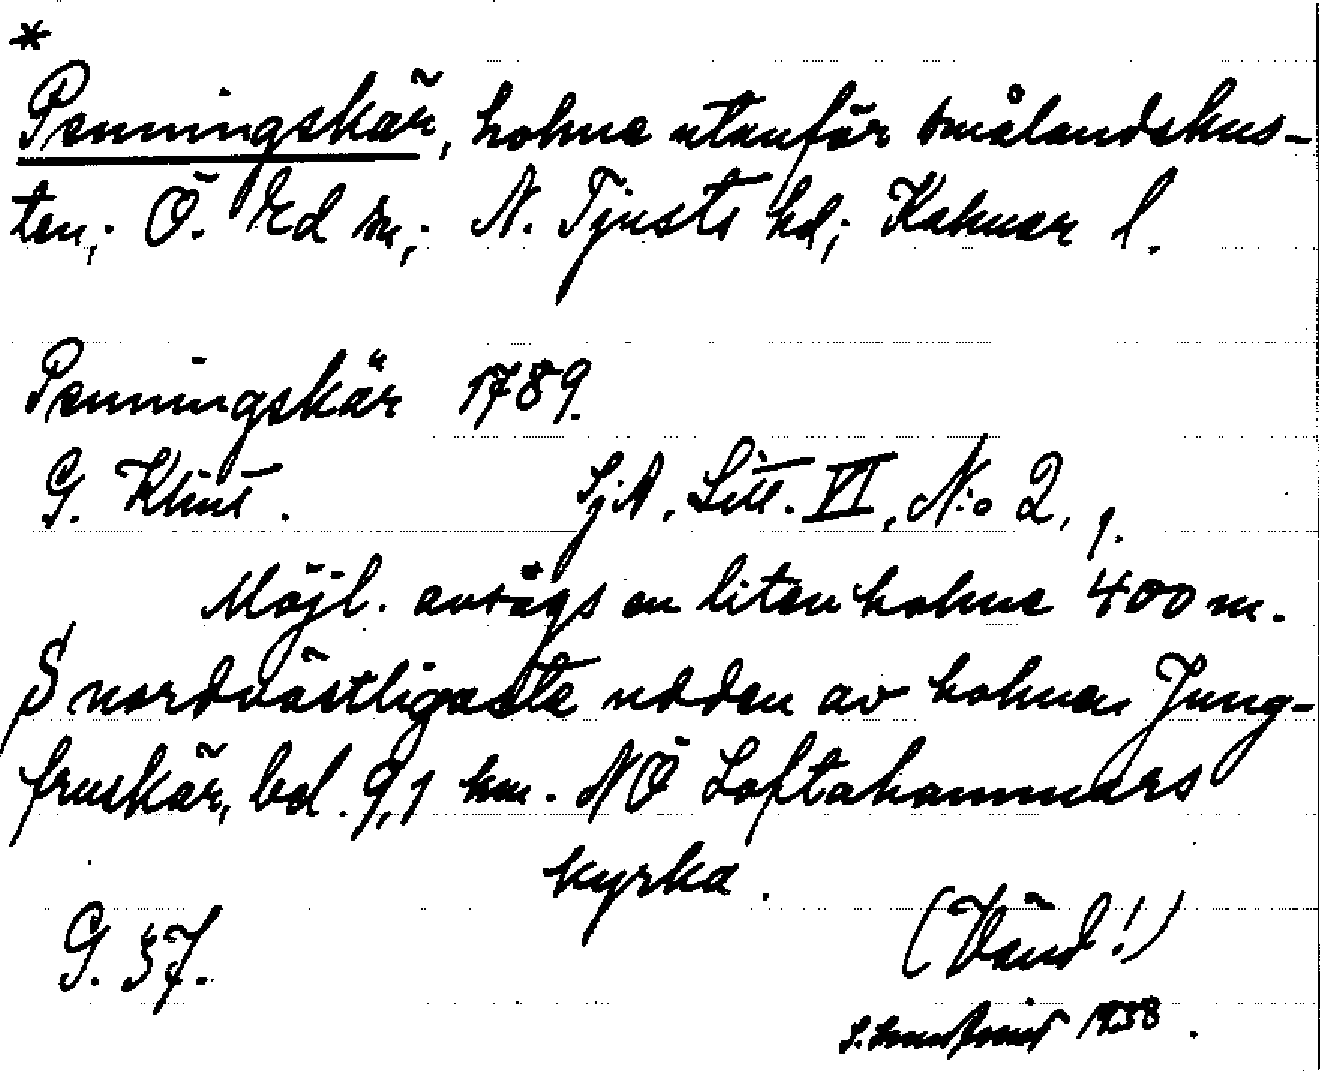 *
Penningskär, holme utanför smålandskus-
ten; Ö. Ed sn; N. Tjusts hd; Kalmar l.
Penningskär 1789.
G. Klint. SjA, Litt. VI, N:o 2, 1.
Möjl. avsågs en liten holme 400 m.
S nordvästligaste udden av holmen Jung-
fruskär, bel. 9,1 km. NÖ Loftahammars
kyrka.
G. 37.
(Vänd!)
1938.